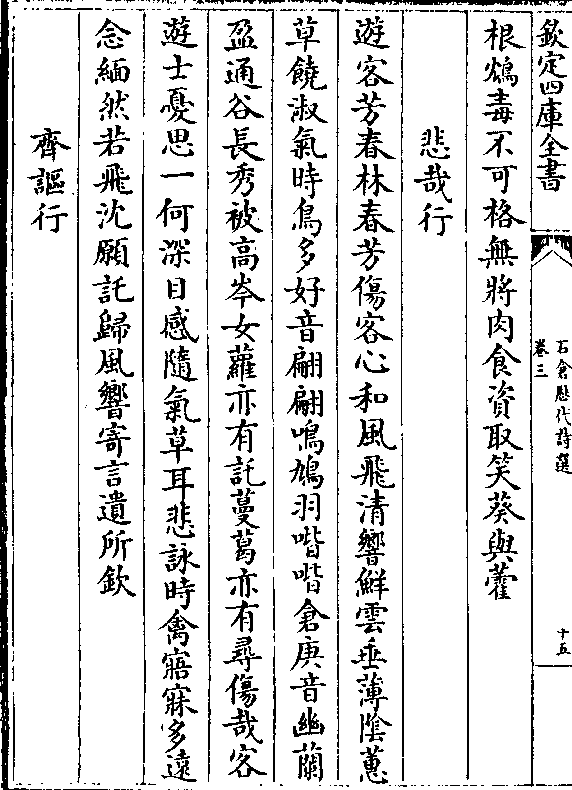 欽定四庫全書
石倉歴代詩選
卷三
十五
根鴆毒不可格無將肉食資取笑葵與藿
悲哉行
遊客芳春林春芳傷客心和風飛清響鮮雲垂薄陰蕙
草饒淑氣時鳥多好音翩翩鳴鳩羽喈喈倉庚音幽蘭
盈通谷長秀被高岑女蘿亦有託蔓葛亦有尋傷哉客
遊士憂思一何深目感隨氣草耳悲詠時禽寤寐多遠
念緬然若飛沈願託歸風響寄言遺所欽
齊謳行